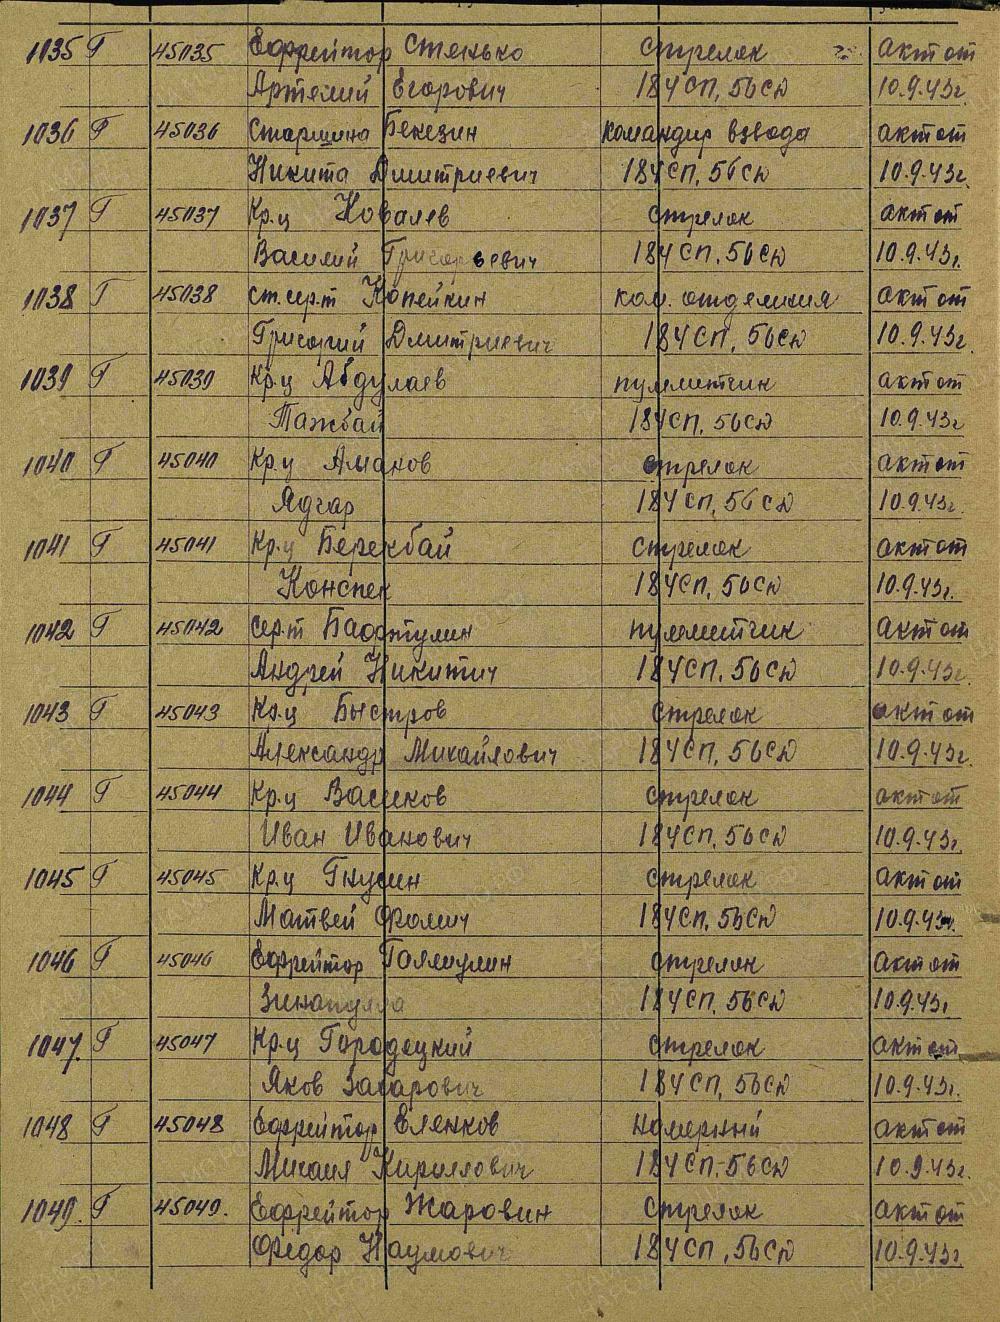 1035 Г 45035 Ефрейтор Стенько стрелок акт от
Артемий Егорович 184 СП, 56 СД 10.9.43г.
1036 Г 45036 Старшина Бекезин командир взвода акт от
Никита Дмитриевич 184 СП, 56 СД 10.9.43г.
1037 Г 45037 Кр.ц Ковалев стрелок акт от
Василий Григорьевич 184 СП, 56 СД 10.9.43г.
1038 Г 45038 ст.сер.т Копейкин ком. отделения акт от
Григорий Дмитриевич 184 СП, 56 СД 10.9.43г.
1039 Г 45039 Кр.ц Абдулаев пулеметчик акт от
Тажбай 184 СП, 56 СД 10.9.43г.
1040 Г 45040 Кр.ц Аманов стрелок акт от
Ядгар 184 СП, 56 СД 10.9.43г.
1041 Г 45041 Кр.ц Берекбай стрелок акт от
Конспек 184 СП, 56 СД 10.9.43г.
1042 Г 45042 сер.т пулеметчик акт от
Андрей Никитич 184 СП, 56 СД 10.9.43г.
1043 Г 45043 Кр.ц Быстров стрелок акт от
Александр Михайлович 184 СП, 56 СД 10.9.43г.
1044 Г 45044 Кр.ц Васиков стрелок акт от
Иван Иванович 184 СП, 56 СД 10.9.43г.
1045 Г 45045 Кр.ц Гнусин стрелок акт от
Матвей Фомич 184 СП, 56 СД 10.9.43г.
1046 Г 45046 Ефрейтор Галмулин стрелок акт от
Зинатулла 184 СП, 56 СД 10.9.43г.
1047. Г 45047 Кр.ц Городецкий стрелок акт от
Яков Захарович 184 СП, 56 СД 10.9.43г.
1048 Г 45048 Ефрейтор Еленков номерный акт от
Михаил Кириллович 184 СП, 56 СД 10.9.43г.
1049. Г 45049. Ефрейтор Жаровин стрелок акт от
Федор Наумович 184 СП, 56 СД 10.9.43г.